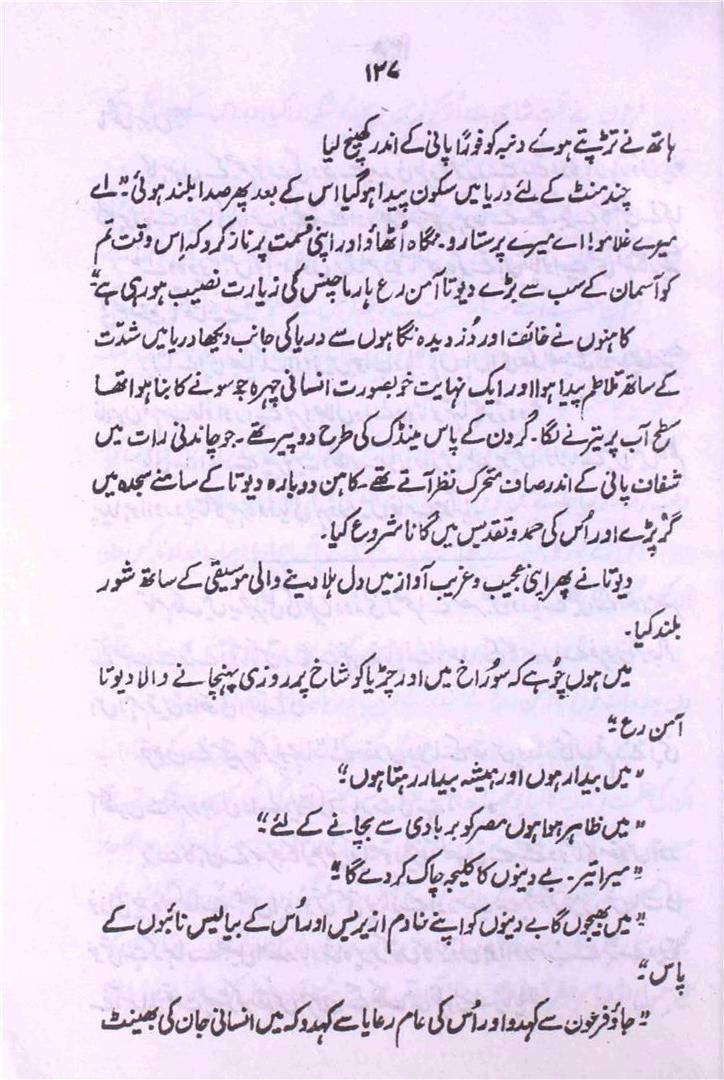 ۱۲۷
ہاتھ نے تڑپتے ہوئے دنبہ کو فوراً پانی کے اندر کھینچ لیا
چند منٹ کے لئے دریا میں سکون پیدا ہو گیا اس کے بعد پھر صدا بلند ہوئی "اے
میرے غلامو! اے میرے پرستارو۔ نگاہ اُٹھاؤ اور اپنی قسمت پر ناز کرو کہ اس وقت تم
کو آسمان کے سب سے بڑے دیوتا آمن رع ہارماچیس کی زیارت نصیب ہو رہی ہے"
کاہنوں نے خائف اور دُزدیدہ نگاہوں سے دریا کی جانب دیکھا دریا میں شدّت
کے ساتھ تلاطم پیدا ہوا اور ایک نہایت خوبصورت انسانی چہرہ جو سونے کا بنا ہوا تھا
سطح آب پر تیرنے لگا۔ گردن کے پاس مینڈک کی طرح دو پیر تھے۔ جو چاندنی رات میں
شفاف پانی کے اندر صاف متحرک نظر آتے تھے۔ کاہن دوبارہ دیوتا کے سامنے سجدہ میں
گر پڑے اور اُس کی حمد و تقدیس میں گانا شروع کیا۔
دیوتا نے پھر اپنی عجیب و غریب آواز میں دل ہلا دینے والی موسیقی کے ساتھ شور
بلند کیا۔
میں ہوں چوہے کہ سوراخ میں اور چڑیا کو شاخ پر روزی پہنچانے والا دیوتا
آمن رع"
"میں بیدار ہوں اور ہمیشہ بیدار رہتا ہوں"
"میں ظاہر ہوا ہوں مصر کو بربادی سے بچانے کے لئے"
"میرا تیر۔ بے دینوں کا کلیجہ چاک کر دے گا"
"میں بھیجوں گا بے دینوں کو اپنے خادم ازیرس اور اُس کے بیالیس نائبوں کے
پاس"
"جاؤ فرعون سے کہدو اور اس کی عام رعایا سے کہدو کہ میں انسانی جان کی بھینٹ